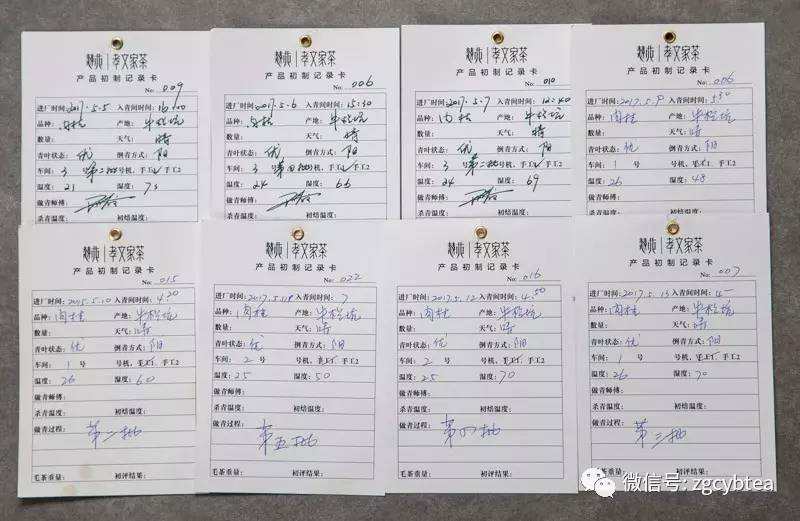 孝文家茶
产品初制记录卡
No: 009
进厂时间: 2017.5.5 入青间时间: 16:00
品种: 肉桂 产地: 牛栏坑
数量: 天气: 晴
青叶状态: 优 倒青方式: 阳
车间: 3 第二批 号机, 手工1 手工2
温度: 21 湿度: 73
做青师傅:
杀青温度: 初结温度:
孝文家茶
产品初制记录卡
No: 006
进厂时间: 2017.5.6 入青间时间: 15:30
品种: 肉桂 产地: 牛栏坑
数量: 天气: 晴
青叶状态: 优 倒青方式: 阳
车间: 3 第四批 号机, 手工1 手工2
温度: 24 湿度: 66
做青师傅:
杀青温度: 初结温度:
孝文家茶
产品初制记录卡
No: 010
进厂时间: 2017.5.7 入青间时间: 12:40
品种: 肉桂 产地: 牛栏坑
数量: 天气: 晴
青叶状态: 优 倒青方式: 阳
车间: 3 第二批 号机, 手工1 手工2
温度: 24 湿度: 69
做青师傅:
杀青温度: 初结温度:
孝文家茶
产品初制记录卡
No: 006
进厂时间: 2017.5.9 入青间时间: 5:30
品种: 肉桂 产地: 牛栏坑
数量: 天气: 晴
青叶状态: 优 倒青方式: 阳
车间: 1 号 号机, 手工1 手工2
温度: 26 湿度: 48
做青师傅:
杀青温度: 初结温度:
孝文家茶
产品初制记录卡
No: 015
进厂时间: 2015.5.10 入青间时间: 4:20
品种: 肉桂 产地: 牛栏坑
数量: 天气: 晴
青叶状态: 优 倒青方式: 阳
车间: 1 号 号机, 手工1, 手工2
温度: 26 湿度: 60
做青师傅:
杀青温度: 初结温度:
做青过程: 第二批
毛茶重量: 初评结果:
孝文家茶
产品初制记录卡
No: 022
进厂时间: 2017.5.11 入青间时间: 7
品种: 肉桂 产地: 牛栏坑
数量: 天气: 晴
青叶状态: 优 倒青方式: 阳
车间: 2 号 号机, 手工1, 手工2
温度: 25 湿度: 50
做青师傅:
杀青温度: 初结温度:
做青过程: 第五批
毛茶重量: 初评结果:
孝文家茶
产品初制记录卡
No: 016
进厂时间: 2017.5.12 入青间时间: 4:50
品种: 肉桂 产地: 牛栏坑
数量: 天气: 晴
青叶状态: 优 倒青方式: 阳
车间: 2 号 号机, 手工1, 手工2
温度: 25 湿度: 70
做青师傅:
杀青温度: 初结温度:
做青过程: 第四批
毛茶重量: 初评结果:
孝文家茶
产品初制记录卡
No: 007
进厂时间: 2017.5.13 入青间时间: 4
品种: 肉桂 产地: 牛栏坑
数量: 天气: 晴
青叶状态: 优 倒青方式: 阳
车间: 1 号 号机, 手工1, 手工2
温度: 26 湿度: 70
做青师傅:
杀青温度: 初结温度:
做青过程: 第三批
毛茶重量: 初评结果:
微信号: zgcybtea